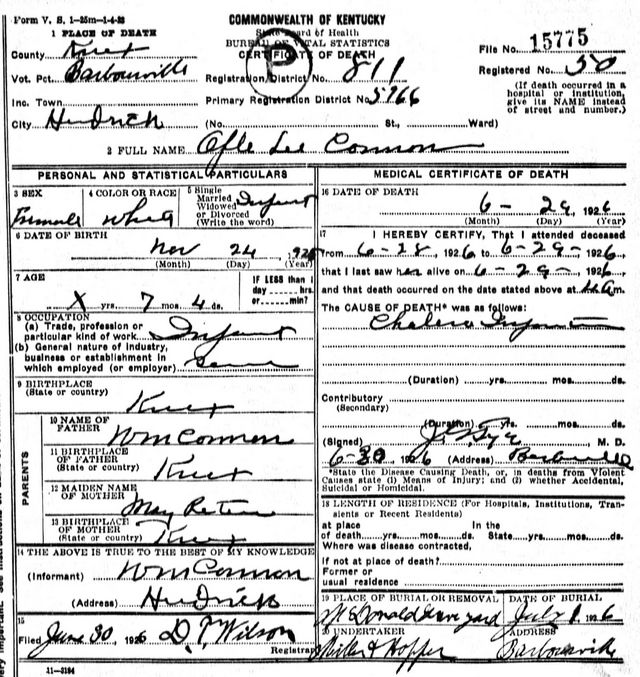 Form V. S. 1-25m-1-4-26
COMMONWEALTH OF KENTUCKY
State Board of Health
BUREAU OF VITAL STATISTICS
CERTIFICATE OF DEATH
1 PLACE OF DEATH
County Knox
Vot. Pct. Barbourville
Inc. Town
City
File No. 15775
Registered No. 50
Registration District No. 811
Primary Registration District No. 5766
(If death occurred in a hospital or institution, give its NAME instead of street and number.)
(No. St., Ward)
2 FULL NAME Ofle Lee Connon
PERSONAL AND STATISTICAL PARTICULARS
3 SEX
Female
4 COLOR OR RACE
White
5 Single Married Widowed or Divorced (Write the word)
Infant
6 DATE OF BIRTH
Nov 24 1925
(Month) (Day) (Year)
7 AGE
X yrs. 7 mos. 4 ds.
IF LESS than 1 day hrs. or min?
8 OCCUPATION
(a) Trade, profession or particular kind of work Infant
(b) General nature of industry, business or establishment in which employed (or employer)
9 BIRTHPLACE
(State or country) Knox
PARENTS
10 NAME OF FATHER Wm Connon
11 BIRTHPLACE OF FATHER (State or country) Knox
12 MAIDEN NAME OF MOTHER May
13 BIRTHPLACE OF MOTHER (State or country) Knox
14 THE ABOVE IS TRUE TO THE BEST OF MY KNOWLEDGE
(Informant) Wm Connon
(Address)
15
Filed June 30, 1926 D. T. Wilson
Registrar
11-3184
MEDICAL CERTIFICATE OF DEATH
16 DATE OF DEATH
6 - 29, 1926
(Month) (Day) (Year)
17 I HEREBY CERTIFY, That I attended deceased
from 6-28, 1926, to 6-29-, 1926,
that I last saw her alive on 6-29-, 1926,
and that death occurred on the date stated above at m.
The CAUSE OF DEATH* was as follows:
Cholera Infantum
(Duration) yrs. mos. ds.
Contributory
(Secondary)
(Duration) yrs. mos. ds.
(Signed) M. D.
6-30, 1926 (Address)
*State the Disease Causing Death, or, in deaths from Violent Causes state (1) Means of Injury; and (2) whether Accidental, Suicidal or Homicidal.
18 LENGTH OF RESIDENCE (For Hospitals, Institutions, Transients or Recent Residents)
At place of death yrs. mos. ds. In the State yrs. mos. ds.
Where was disease contracted,
If not at place of death?
Former or usual residence
19 PLACE OF BURIAL OR REMOVAL
McDonald Graveyard
DATE OF BURIAL
July 1, 1926
20 UNDERTAKER
Miller & Hopper
ADDRESS
Barbourville